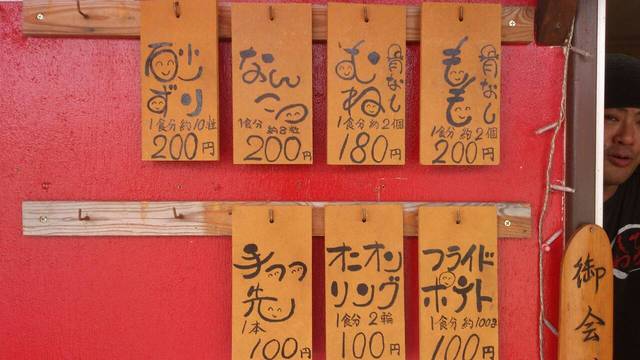 砂
ずり
1食分 約10粒
200円
なん
こつ
1食分 約8粒
200円
むね
骨なし
1食分 約2個
180円
もも
骨なし
1食分 約2個
200円
手っっ
先
1本
100円
オニオン
リング
1食分 2輪
100円
フライド
ポテト
1食分 約100g
100円
御会